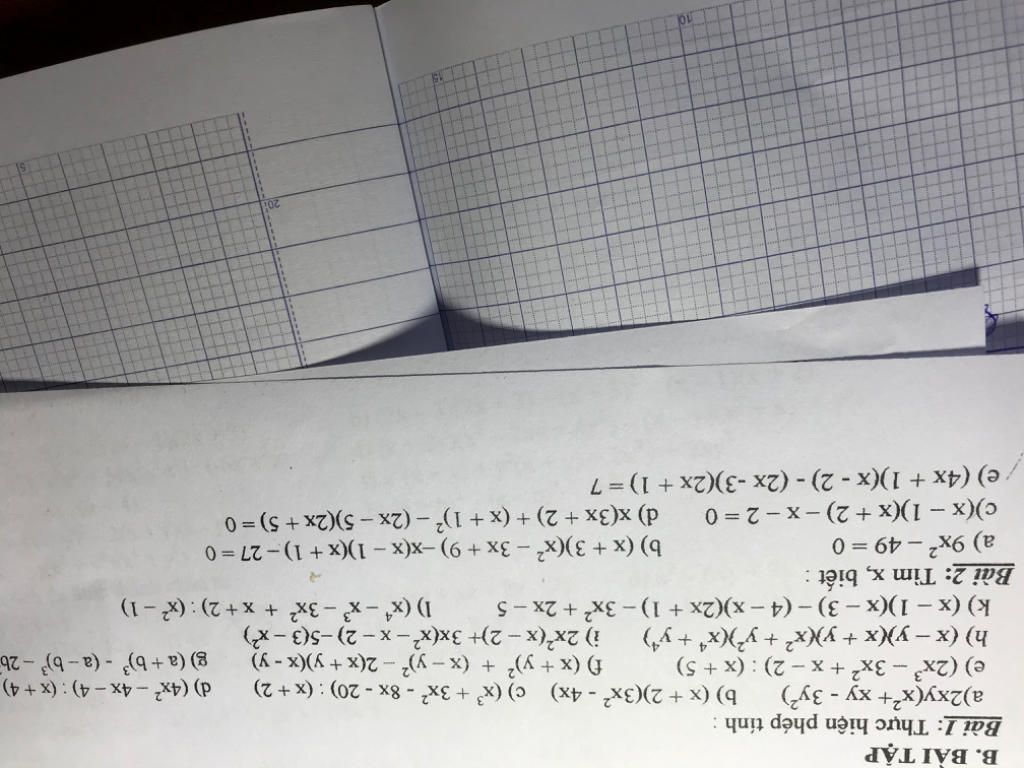 B. BÀI TẬP
Bài 1: Thực hiện phép tính :
a)2xy(x²+ xy - 3y²) b) (x + 2)(3x² - 4x) c) (x³ + 3x² - 8x - 20) : (x + 2) d) (4x² – 4x – 4) : (x + 4)
e) (2x³ – 3x² + x – 2) : (x + 5) f) (x + y)² + (x – y)² – 2(x + y)(x - y) g) (a + b)³ - (a – b)³ – 2b
h) (x – y)(x + y)(x² + y²)(x⁴ + y⁴) i) 2x²(x – 2)+ 3x(x² – x – 2) –5(3 – x²)
k) (x – 1)(x – 3) – (4 – x)(2x + 1) – 3x² + 2x – 5 l) (x⁴ – x³ – 3x² + x + 2) : (x² – 1)
Bài 2: Tìm x, biết :
a) 9x² – 49 = 0 b) (x + 3)(x² – 3x + 9) –x(x – 1)(x + 1) – 27 = 0
c)(x – 1)(x + 2) – x – 2 = 0 d) x(3x + 2) + (x + 1)² – (2x – 5)(2x + 5) = 0
e) (4x + 1)(x - 2) - (2x -3)(2x + 1) = 7
20
5
15
10